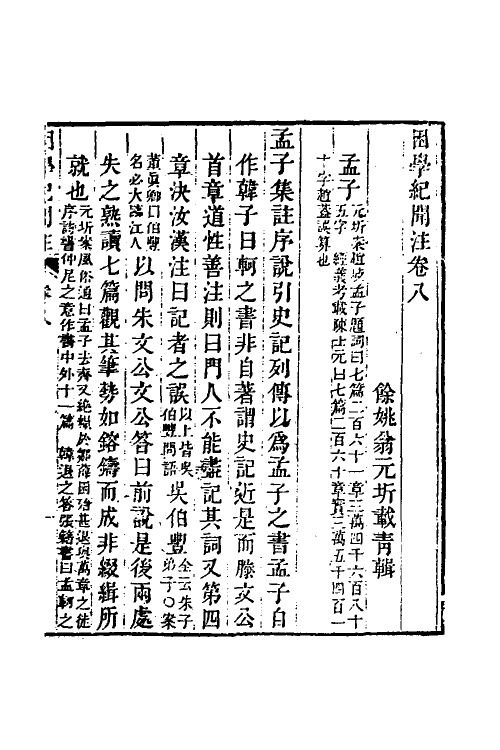 困學紀聞注卷八
餘姚翁元圻載青輯
孟子元圻案趙岐孟子題詞曰七篇二百六十一章三萬四千六百八十
五字 經義考載陳士元曰七篇二百六十章實三萬五千四百一
十字趙蓋誤算也
孟子集註序說引史記列傳以為孟子之書孟子自
作韓子曰軻之書非自著謂史記近是而滕文公
首章道性善注則曰門人不能盡記其詞又第四
章決汝漢注曰記者之誤以上皆吳
伯豐問語吳伯豐全云朱子
弟子〇案
董眞卿曰伯豐
名必大臨江人以問朱文公文公答曰前說是後兩處
失之熟讀七篇觀其筆勢如鎔鑄而成非綴緝所
就也元圻案風俗通曰孟子去齊又絶糧於鄒薛困殆甚退與萬章之徒
序詩書仲尼之意作書中外十一篇 韓退之答張籍書曰孟軻之
困學紀聞注 卷八